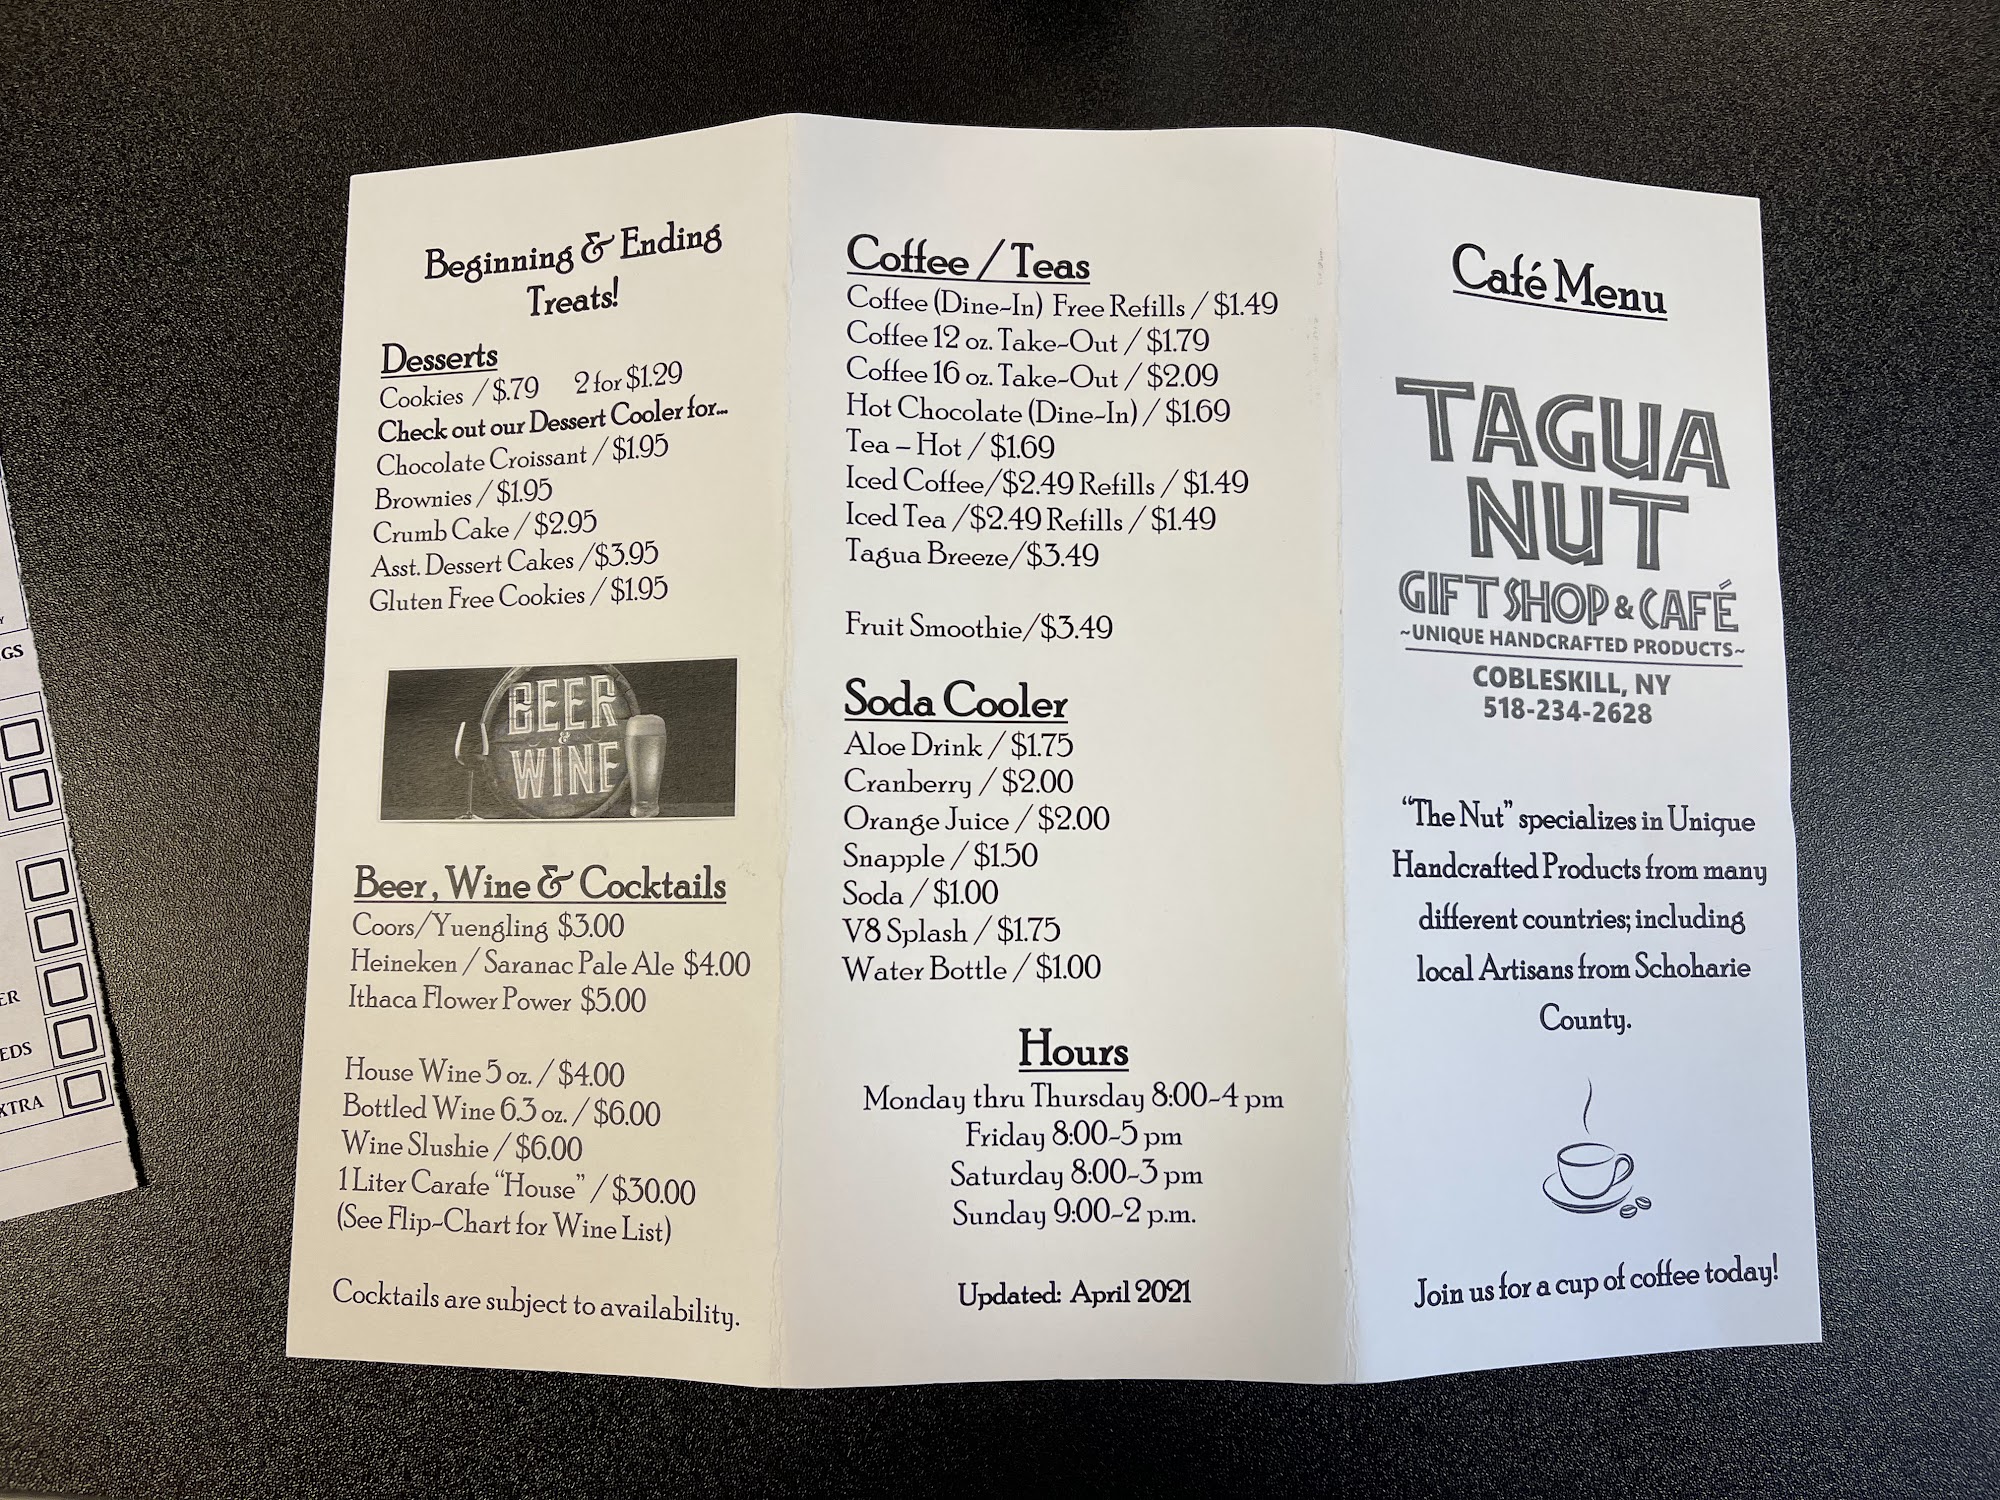 Beginning & Ending
Treats!
Desserts
Cookies / $.79 2 for $1.29
Check out our Dessert Cooler for...
Chocolate Croissant / $1.95
Brownies / $1.95
Crumb Cake / $2.95
Asst. Dessert Cakes / $3.95
Gluten Free Cookies / $1.95
BEER
&
WINE
Beer, Wine & Cocktails
Coors/Yuengling $3.00
Heineken / Saranac Pale Ale $4.00
Ithaca Flower Power $5.00
House Wine 5 oz. / $4.00
Bottled Wine 6.3 oz. / $6.00
Wine Slushie / $6.00
1 Liter Carafe “House” / $30.00
(See Flip-Chart for Wine List)
Cocktails are subject to availability.
Coffee / Teas
Coffee (Dine-In) Free Refills / $1.49
Coffee 12 oz. Take-Out / $1.79
Coffee 16 oz. Take-Out / $2.09
Hot Chocolate (Dine-In) / $1.69
Tea – Hot / $1.69
Iced Coffee/$2.49 Refills / $1.49
Iced Tea /$2.49 Refills / $1.49
Tagua Breeze/$3.49
Fruit Smoothie/$3.49
Soda Cooler
Aloe Drink / $1.75
Cranberry / $2.00
Orange Juice / $2.00
Snapple / $1.50
Soda / $1.00
V8 Splash / $1.75
Water Bottle / $1.00
Hours
Monday thru Thursday 8:00-4 pm
Friday 8:00-5 pm
Saturday 8:00-3 pm
Sunday 9:00-2 p.m.
Updated: April 2021
Café Menu
TAGUA
NUT
GIFT SHOP & CAFÉ
~UNIQUE HANDCRAFTED PRODUCTS~
COBLESKILL, NY
518-234-2628
“The Nut” specializes in Unique
Handcrafted Products from many
different countries; including
local Artisans from Schoharie
County.
Join us for a cup of coffee today!